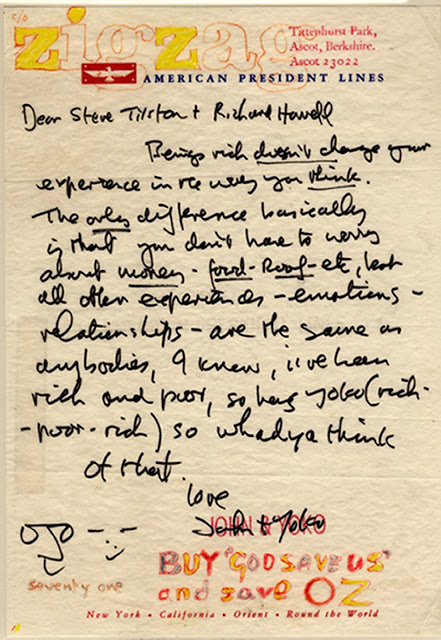 c/o
zigzag
Tittenhurst Park,
Ascot, Berkshire.
Ascot 23022
AMERICAN PRESIDENT LINES
Dear Steve Tilston + Richard Howell
Being rich doesn't change your
experience in the way you think.
The only difference basically
is that you don't have to worry
about money - food - Roof - etc, but
all other experiences - emotions -
relationships - are the same as
anybodies, I know, i've been
rich and poor, so has yoko (rich-
-poor-rich) so whadya think
of that.
love
John + Yoko
JOHN & YOKO
BUY "GOD SAVE US"
seventy one
and save OZ
New York • California • Orient • Round the World